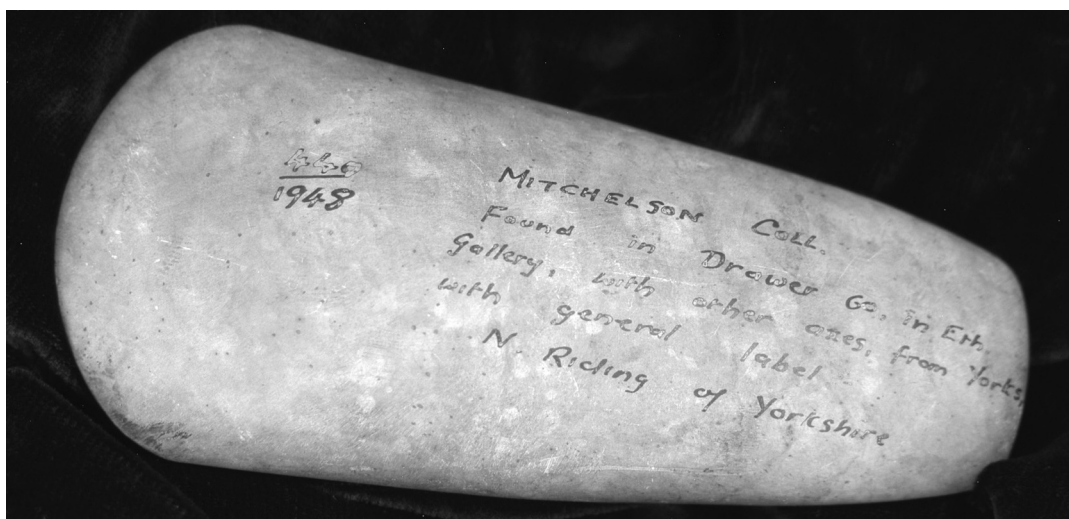 440
1948
MITCHELSON COLL.
Found in Drawer 62, in Eth.
Gallery, with other axes, from Yorks,
with general label
N. Riding of Yorkshire